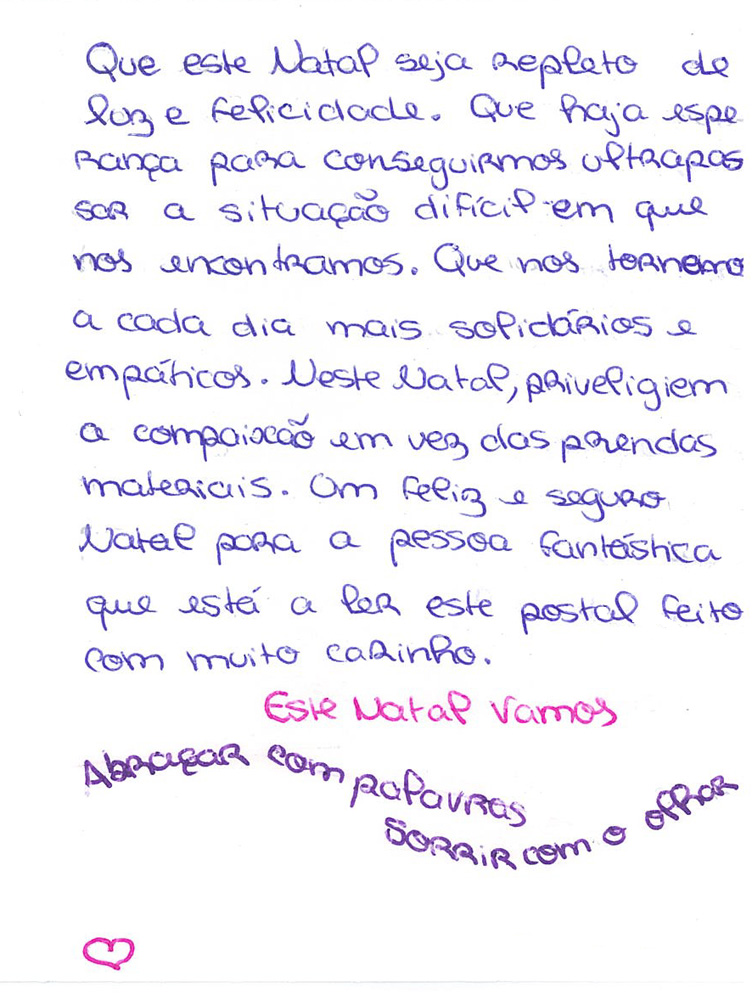 Que este Natal seja repleto de
luz e felicidade. Que haja espe
rança para conseguirmos ultrapas
sar a situação difícil em que
nos encontramos. Que nos tornemo
a cada dia mais solidários e
empáticos. Neste Natal, priveligiem
a compaixão em vez das prendas
materiais. Um feliz e seguro
Natal para a pessoa fantástica
que está a ler este postal feito
com muito carinho.
Este Natal Vamos
Abraçar com palavras
Sorrir com o olhar